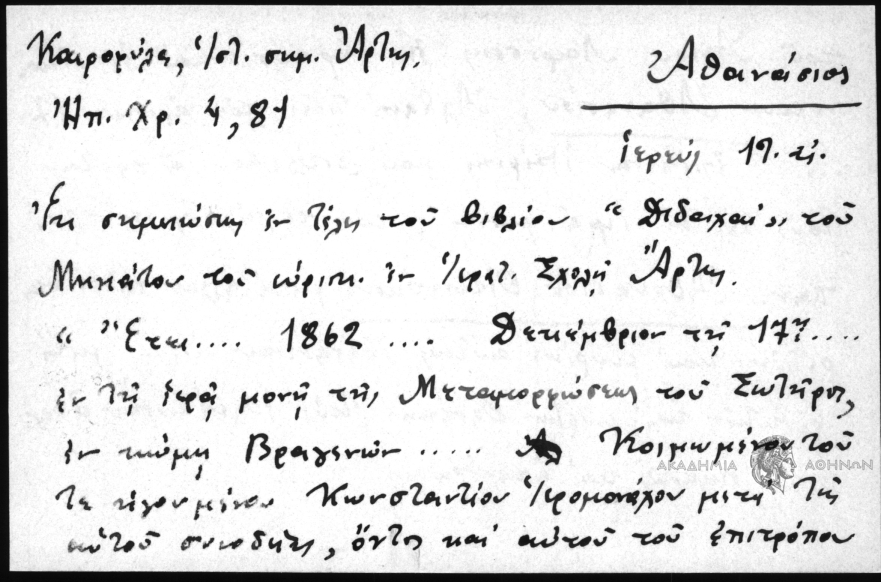 Καιροφύλα, Ἱστ. σημ. Ἄρτης.
Ἠπ. Χρ. 4, 81
Ἀθανάσιος
ἱερεύς 19. αἰ.
Ἐκ σημειώσεως ἐν τέλει τοῦ βιβλίου "Διδαχαί" τοῦ
Μηνιάτου τοῦ εὑρισκ. ἐν Ἱερατ. Σχολῇ Ἄρτης.
" Ἔτει.... 1862 .... Δεκεμβρίου τῇ 17ῃ ....
ἐν τῇ ἱερᾷ μονῇ τῆς Μεταμορφώσεως τοῦ Σωτῆρος,
ἐν κώμῃ ..... Κοιμωμένου τοῦ
τε ἡγουμένου Κωνσταντίου Ἱερομονάχου μετὰ τῆς
αὐτοῦ συνοδείας, ὄντος καὶ αὐτοῦ τοῦ ἐπιτρόπου
ΑΚΑΔΗΜΙΑ ΑΘΗΝΩΝ